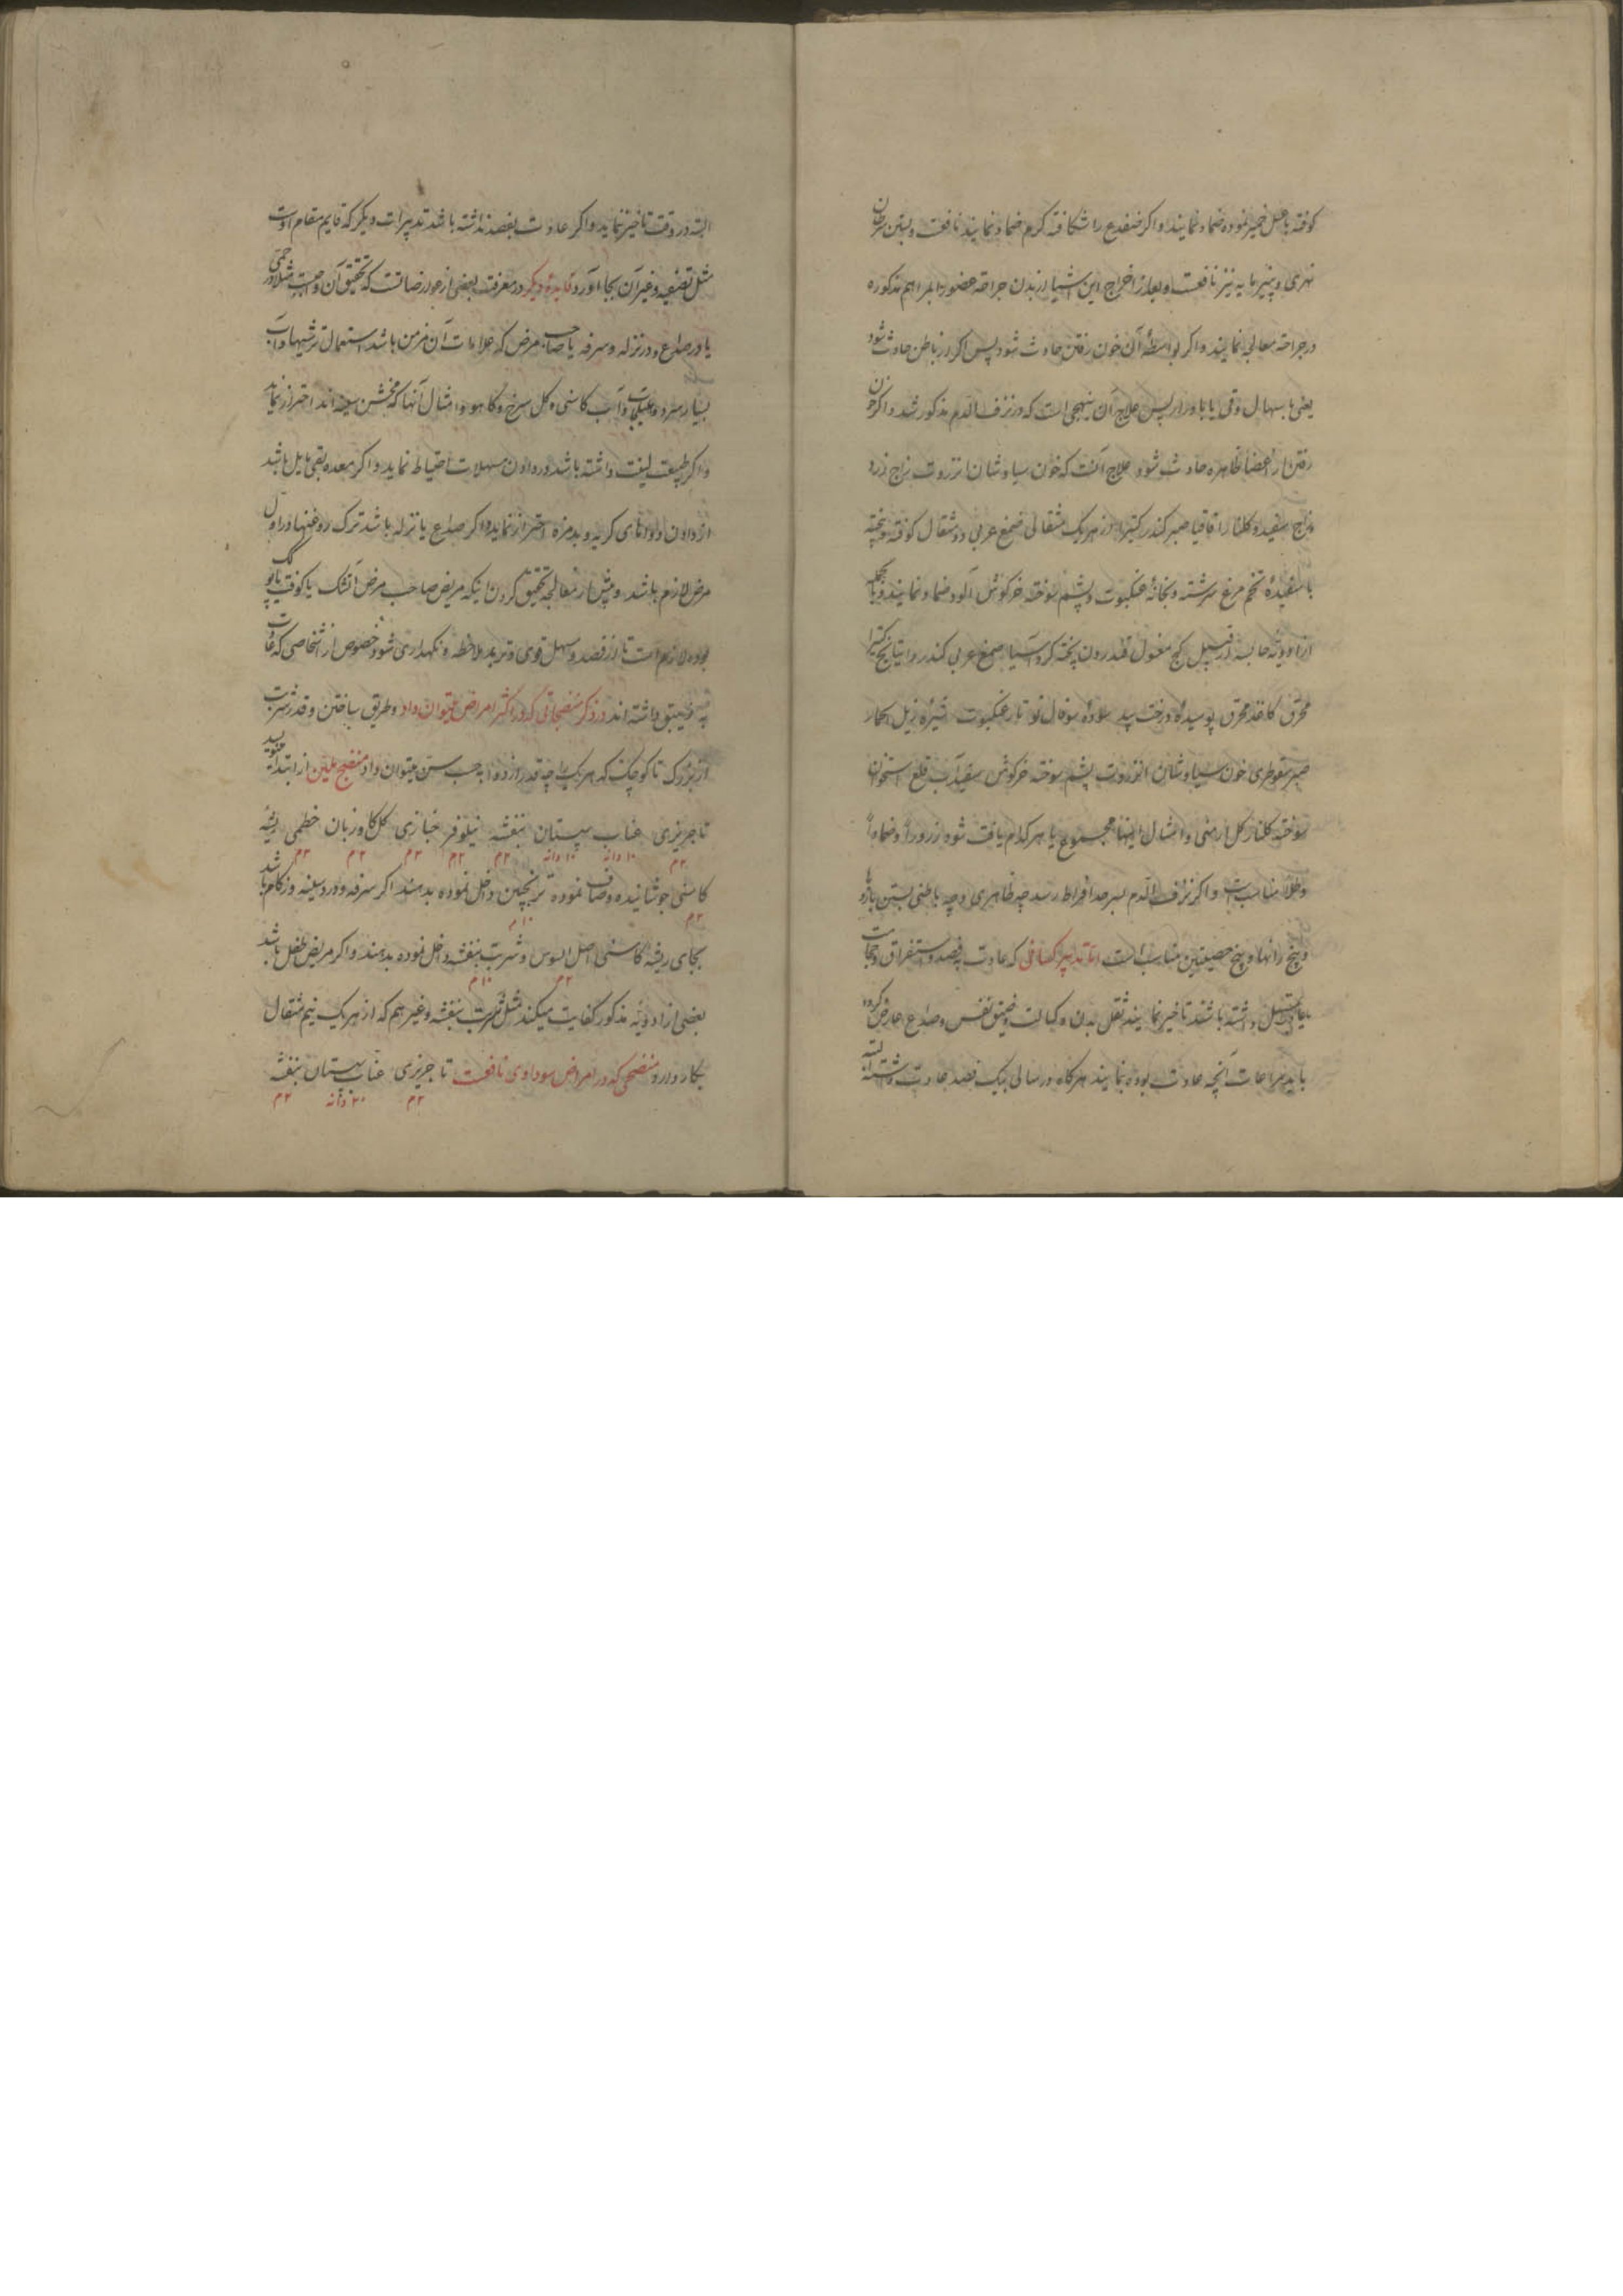 کوفته با عسل خمیر نموده ضماد نمایند و اکر ضفدع را شکافته کرم ضماد نمایند نافعست و بستن سرطان
نهری و پنیر مایه نیز نافعست و بعد از اخراج این اشیا از بدن جراحة عضو را بمراهم مذکوره
در جراحة معالجه نمایند و اکر بواسطهٔ آن خون رفتن حادث شود پس اکر در باطن حادث شود
یعنی باسهال و قی یا بادرار پس علاج آن بنهجی است که در نزف الدم مذکور شد و اکر خون
رفتن از اعضا ظاهره حادث شود علاج آنست که خون سیاوشان انزروت زاج زرد
زاج سفید و کلنار اقاقیا صبر کندر کتیرا از هر یک مثقالی صمغ عربی دو مثقال کوفته و پخته
با سفیدهٔ تخم مرغ سرشته و بخانهٔ عنکبوت و پشم سوخته خرکوش آلود ضماد نمایند
از ادویهٔ حابسه کچ مغسول قلندرون پخته کرد آسیا صمغ عربی کندر کتیرا
محرق کاغذ محرق پوسیدهٔ درخت بید سوفال نو تار عنکبوت زبل الحمار
صبر سقوطری خون سیاوشان انزروت پشم سوخته خرکوش سفیدآب قلع استخوان
سوخته کلنار کل ارمنی و امثال اینها مجموع یا هر کدام یافت شود زروراً و ضماداً
و طلاً مناسبست و اکر نزف الدم بسرحد افراط رسد چه ظاهری و چه باطنی بستن بازوها
و بیخ رانها و بیخ خصیتین مناسب است اما تدبیر کسانی که عادت بفصد و استفراق و حجامت
یا مسهل داشته باشند تاخیر نمایند ثقل بدن و کسالت و ضیق نفس و صداع عارض کردد
باید مراعات آنچه عادت بوده نمایند هرکاه در سالی بیک فصد عادت داشته اند البته
البته در وقت تاخیر ننماید و اکر عادت بفصد نداشته باشد تدبیرات دیکر که قایم مقام اوست
مثل تصفیه و غیر آن بجا آورد فایدهٔ دیکر در معرفت بعضی از عوارضاتست که تحقیق آن واجبست مثلا در حمی
یا در صداع و در نزله و سرفه یا صاحب مرض که علامات آن مزمن باشد استعمال ترشیها و آب
بسیار سرد و آب کاسنی و کل سرخ و کاهو و امثال آنها که مخشن سینه اند احتراز نماید
و اکر طبیعت لینت داشته باشد در دادن مسهلات احتیاط نماید و اکر معده بقی مایل باشد
از دادن دواهای کریه و بدمزه احتراز نماید و اکر صداع یا نزله باشد ترک روغنها در اول
مرض لازم باشد و پیش از معالجه تحقیق کردن اینکه مریض صاحب مرض آتشک یا کوفت
بوده لازم است تا از فصد و مسهل قوی و تبرید ملاحظه و نکهداری شود خصوص از اشخاصی که عادت
به داشته اند در ذکر منضجاتی که در اکثر امراض میتوان داد و طریق ساختن و قدر شربت
از بزرک تا کوچک که هر یک را چه قدر از دوا به حسب سن میتوان داد منضج ملین از ابتدا
تاجریزی عناب سپستان بنفشه نیلوفر خبازی کل کاوزبان خطمی ریشهٔ
۲م ۱۰ دانه ۱۰ دانه ۲م ۲م ۲م ۲م ۲م
کاسنی جوشانیده و صاف نموده ترنجبین داخل نموده بدهند اکر سرفه و درد سینه و زکام باشد
۲م ۱۰م
بجای ریشهٔ کاسنی اصل السوس و شربت بنفشه داخل نموده بدهند و اکر مریض طفل باشد
۲م ۱۰م
بعضی از ادویهٔ مذکور کفایت میکند مثل شربت بنفشه و غیرهم که از هر یک نیم مثقال
بکار دارد منضجی که در امراض سوداوی نافعست تاجریزی عناب سپستان بنفشه
۲م ۲۰ دانه ۲م